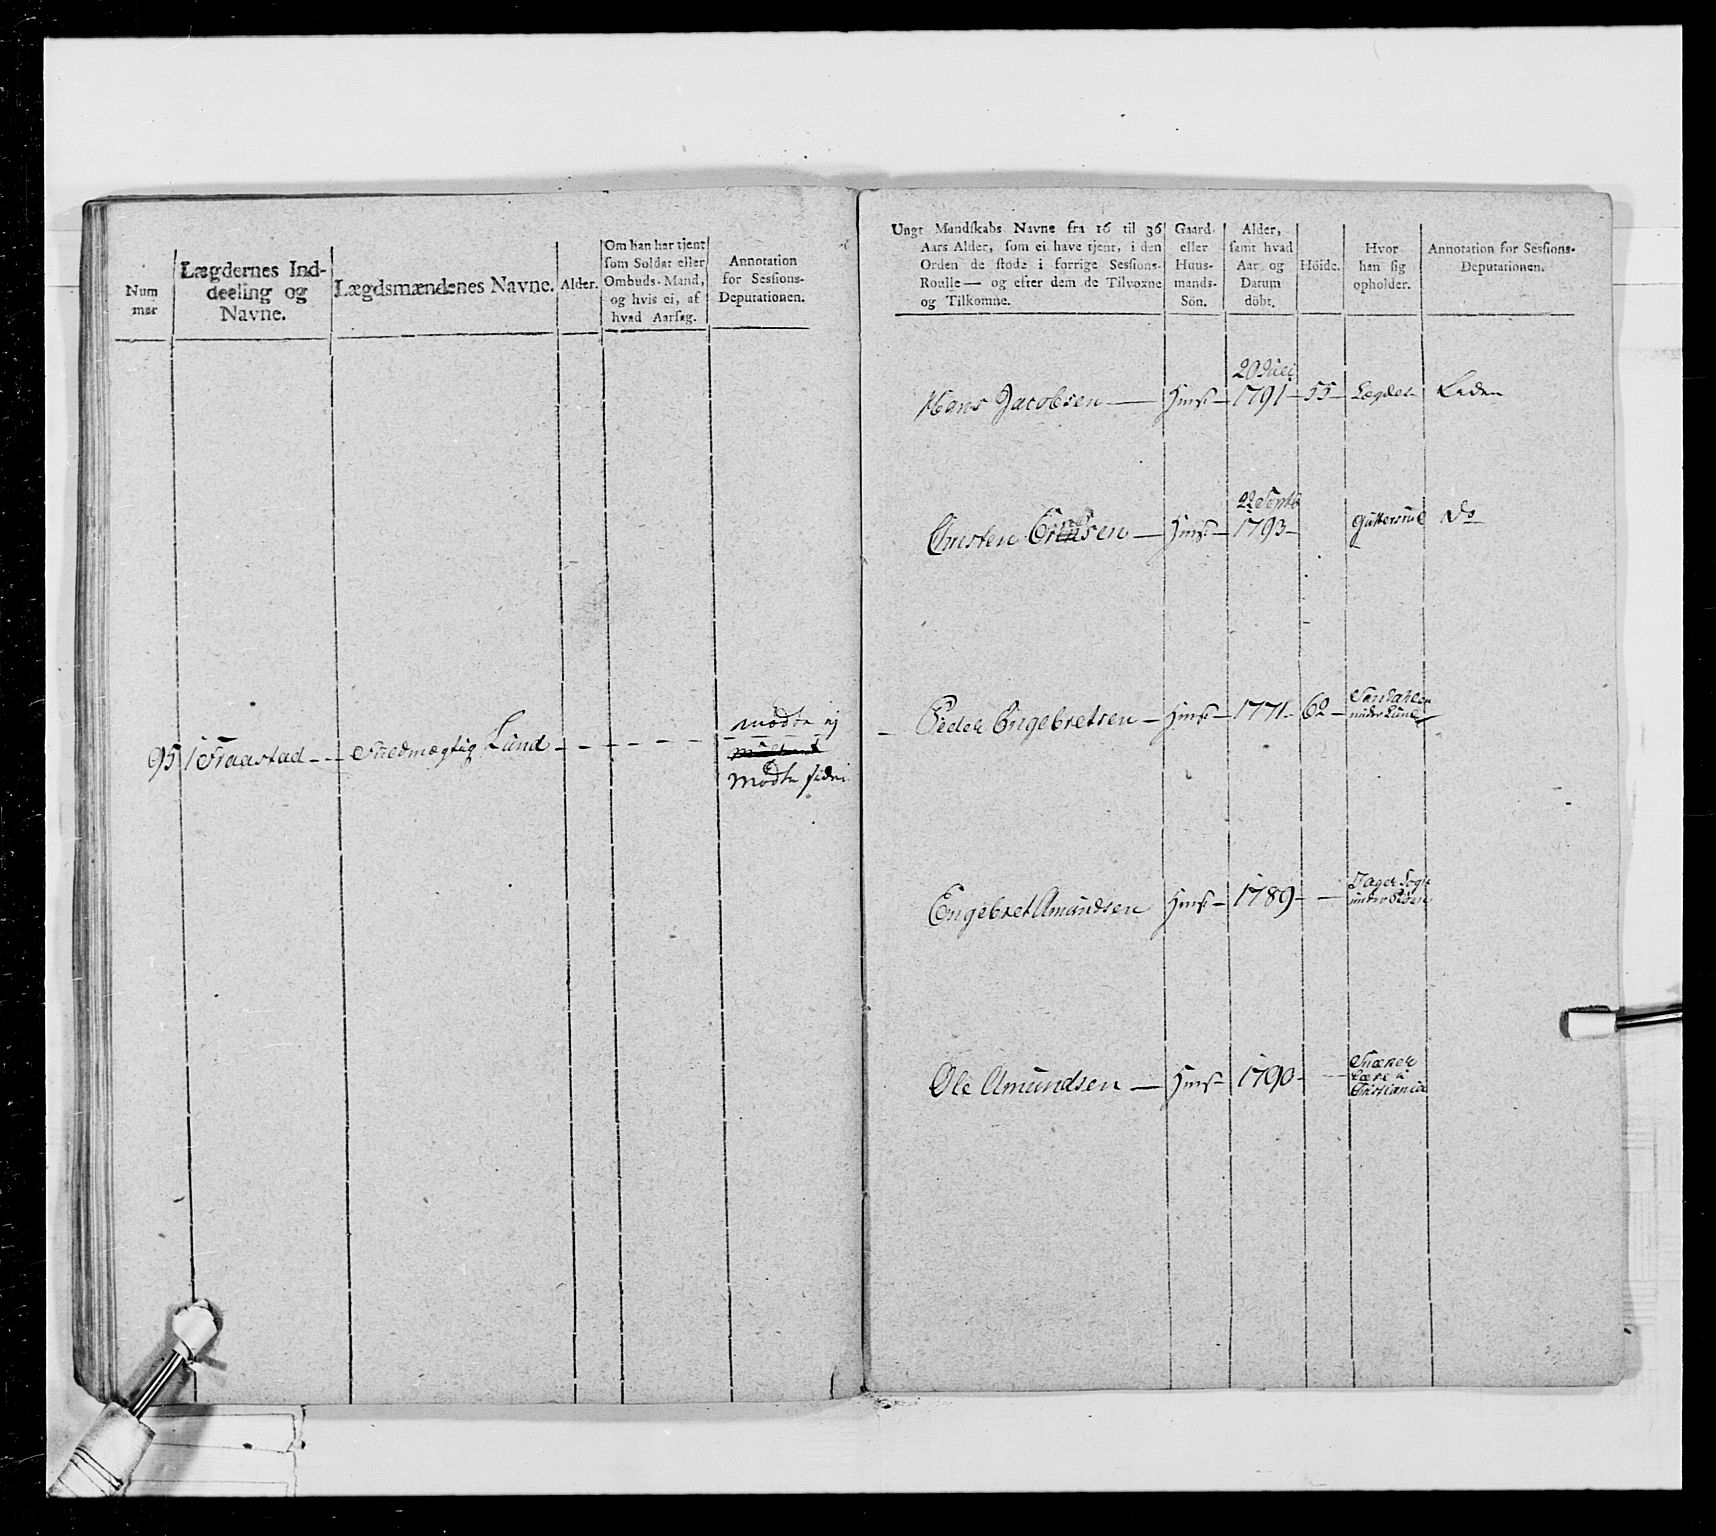 Num
mer
Lægdernes Ind-
deeling og
Navne.
Lægdsmændenes Navne.
Alder.
Om han har tjent
som Soldat eller
Ombuds-Mand,
og hvis ei, af
hvad Aarsag.
Annotation
for Sessions-
Deputationen.
95 Fraastad Fuldmægtig Lund
mødte ej
Mødte siden
Ungt Mandskabs Navne fra 16 til 36
Aars Alder, som ei have tjent, i den
Orden de stode i forrige Sessions-
Roulle — og efter dem de Tilvoxne
og Tilkomne.
Gaard-
eller
Huus-
mands-
Sön.
Alder,
samt hvad
Aar og
Datum
döbt.
Höide.
Hvor
han sig
opholder.
Annotation for Sessions-
Deputationen.
20 Juli
Hans Jacobsen — Hms — 1791 — 55 — Lægdet Leden
22 Septb
Christen Hms — 1793 — Do
Peder Engebretsen — Hms — 1771 — 62 —
under Lund
Engebret Amundsen Hms — 1789 —
under
Ole Amundsen — Hms — 1790 —
Snæker
Lære i
Christiania